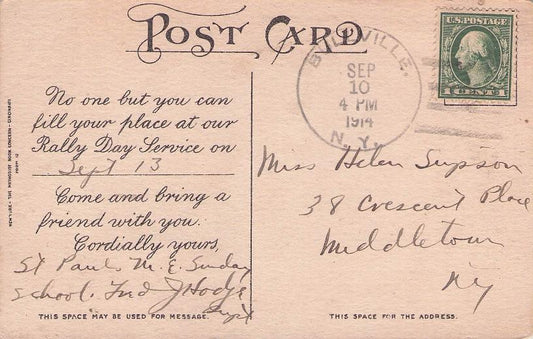 POST CARD
U.S. POSTAGE
1 CENT 1
BULLVILLE.
SEP
10
4 PM
1914
N.Y.
No one but you can
fill your place at our
Rally Day Service on
Sept 13
Come and bring a
friend with you.
Cordially yours,
St Pauls M. E. Sunday
School. Fred J Hodge
Supt
THIS SPACE MAY BE USED FOR MESSAGE.
Miss Helen
38 Crescent Place
Middletown
Ny
THIS SPACE FOR THE ADDRESS.
NEW YORK: THE METHODIST BOOK CONCERN